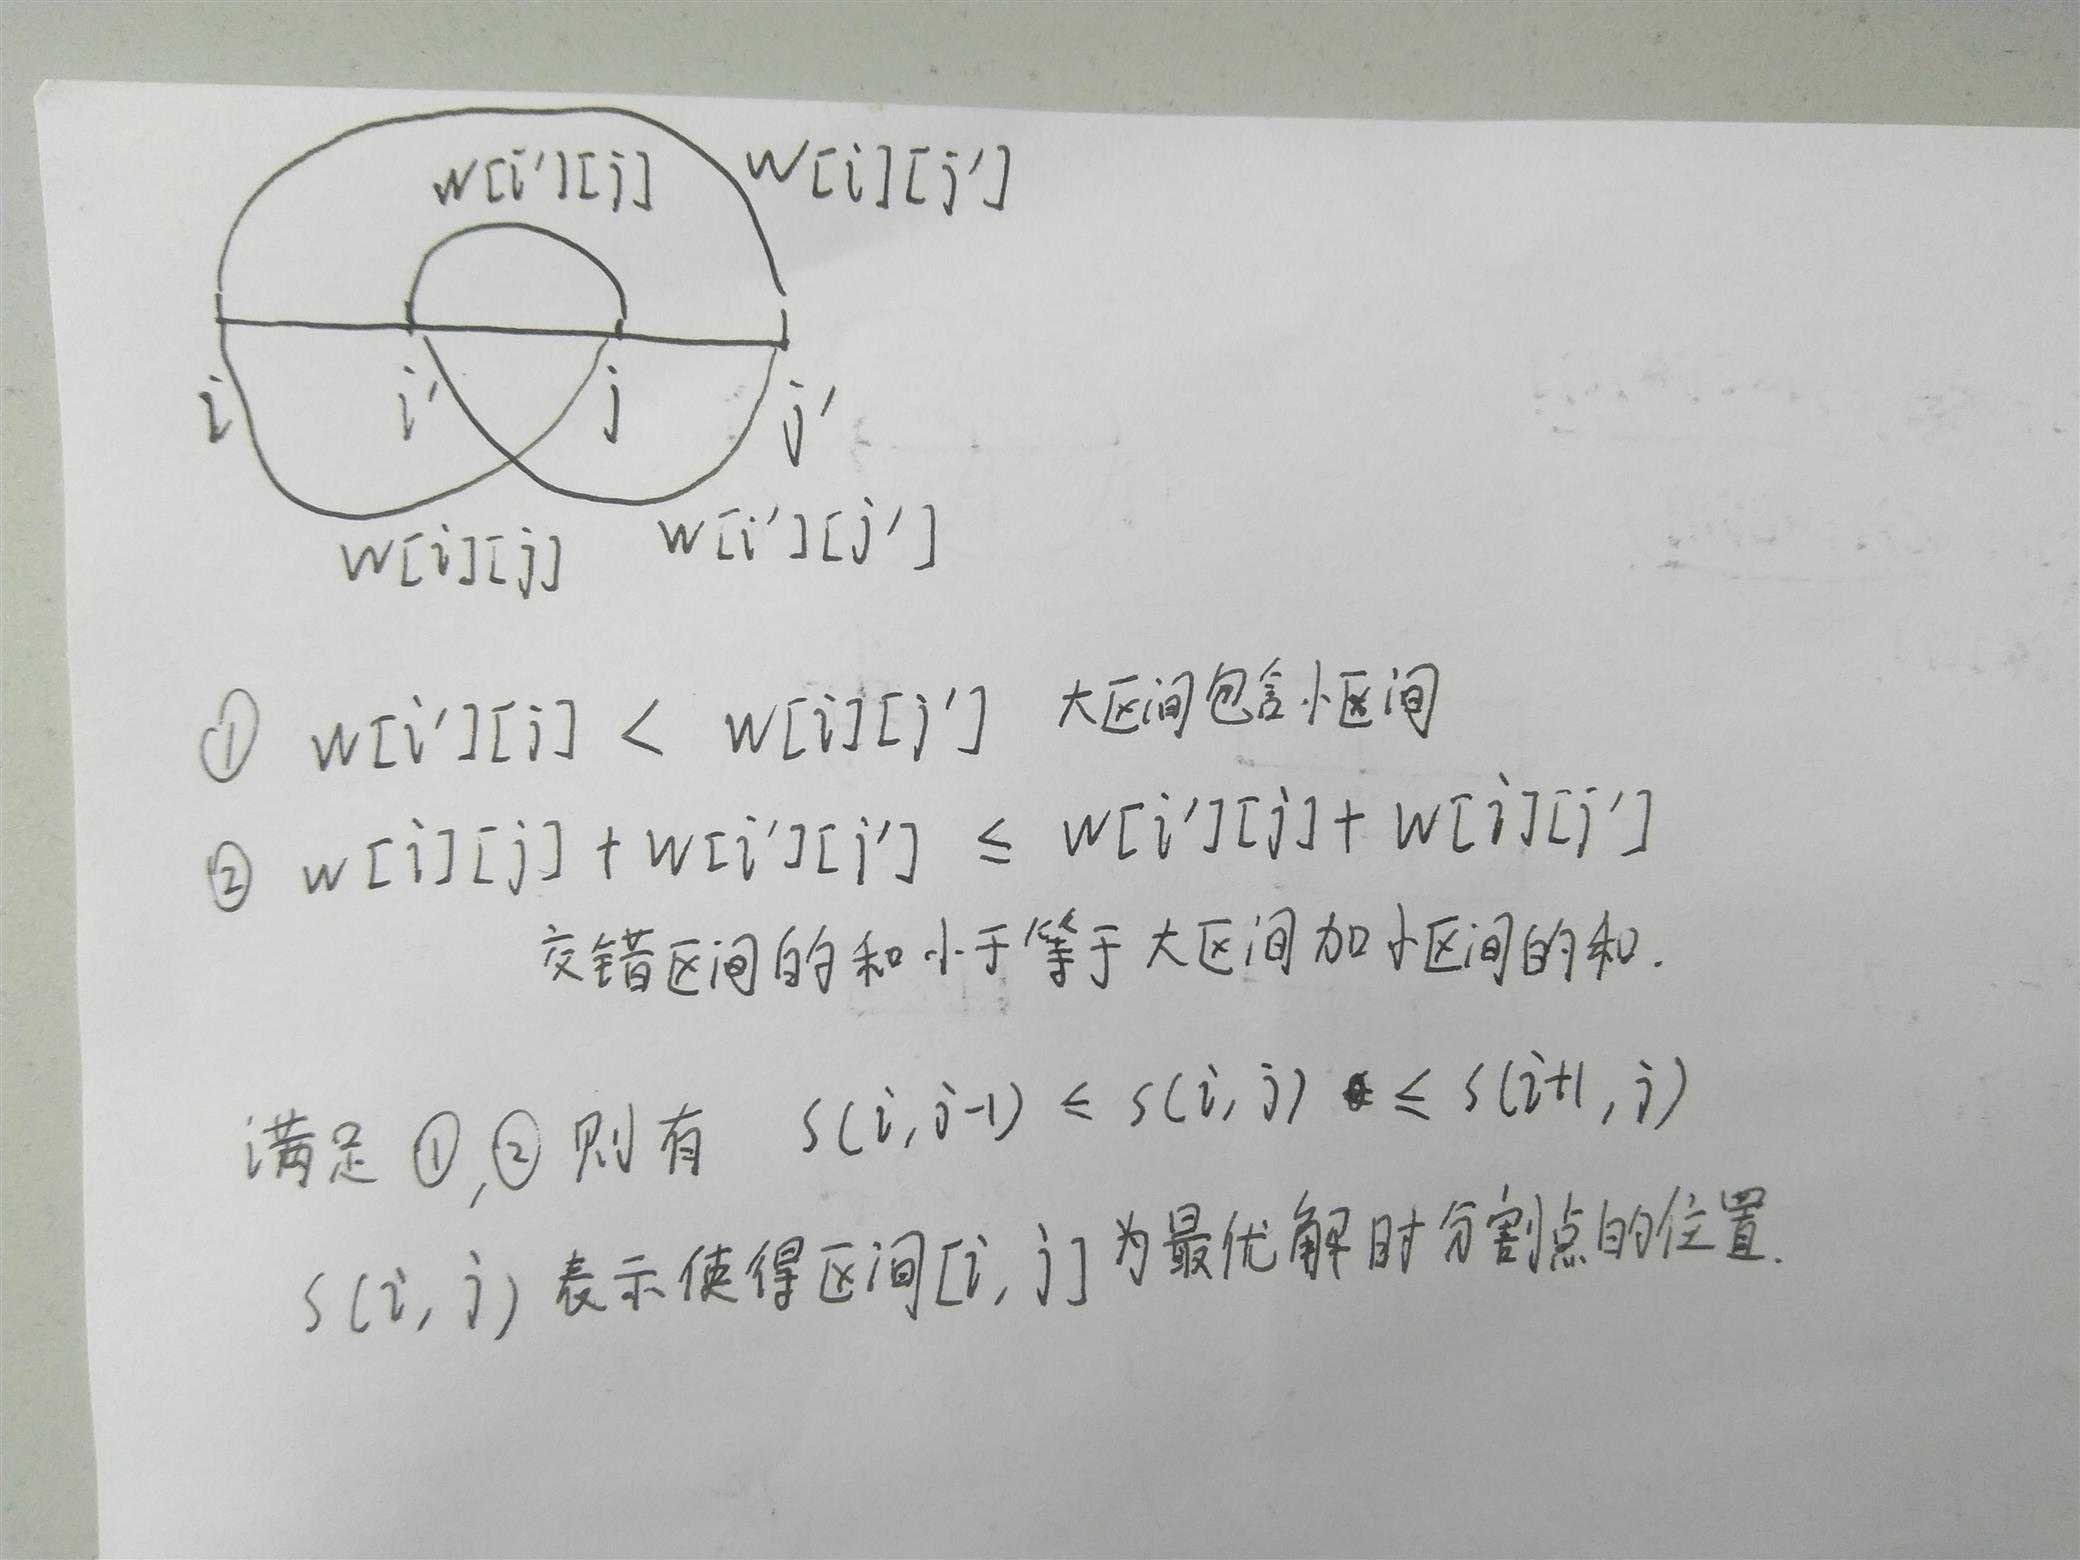 w[i'][j] w[i][j']
i i' j j'
w[i][j] w[i'][j']
① w[i'][j] < w[i][j'] 大区间包含小区间
② w[i][j] + w[i'][j'] ≤ w[i'][j] + w[i][j']
交错区间的和小于等于大区间加小区间的和.
满足①,②则有 s(i,j-1) ≤ s(i,j) ≤ s(i+1,j)
s(i,j)表示使得区间[i,j]为最优解时分割点的位置.